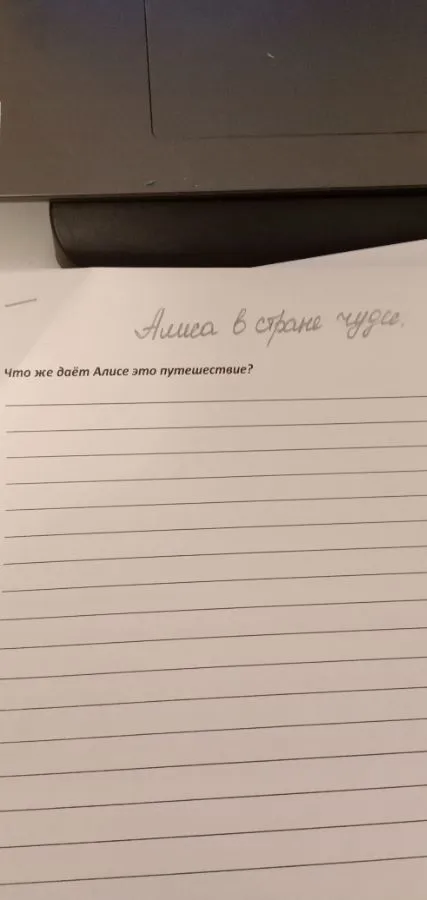 Алиса в стране чудес.
Что же даёт Алисе это путешествие?